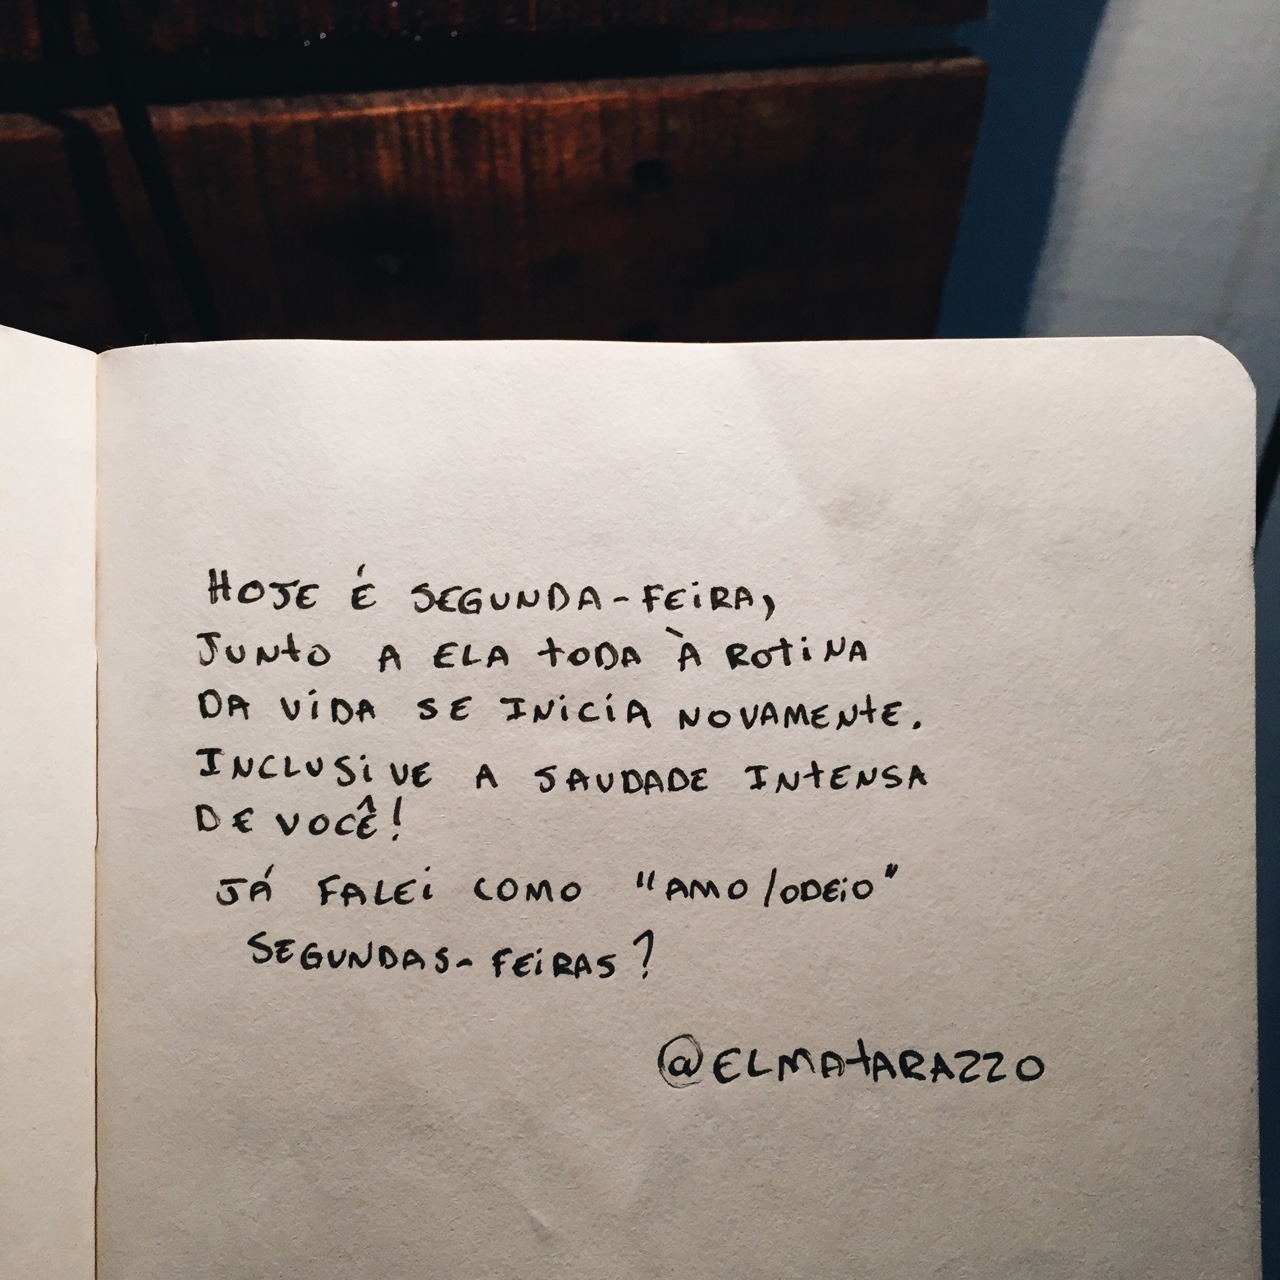 HOJE É SEGUNDA-FEIRA,
JUNTO A ELA TODA À ROTINA
DA VIDA SE INICIA NOVAMENTE.
INCLUSIVE A SAUDADE INTENSA
DE VOCÊ!
JÁ FALEI COMO "AMO/ODEIO"
SEGUNDAS-FEIRAS?
@ELMATARAZZO